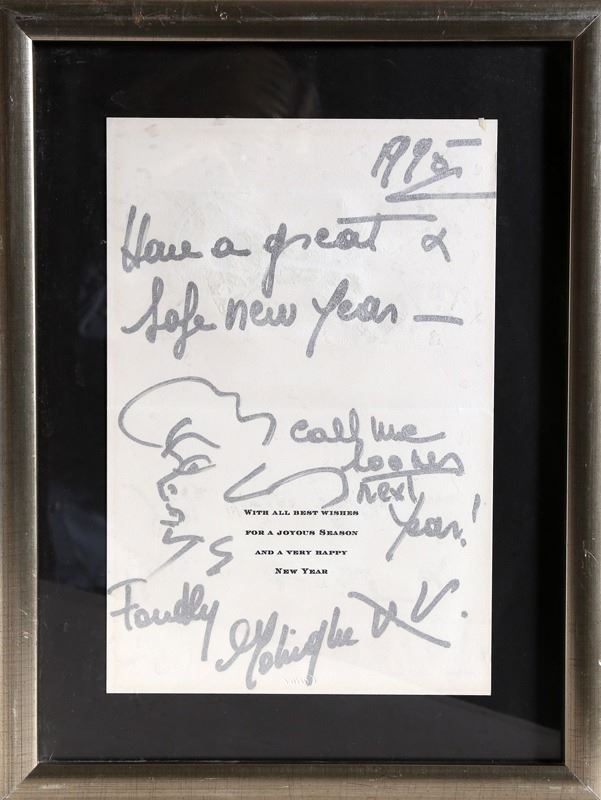 1995
Have a great &
safe new year —
call me
next
Year!
WITH ALL BEST WISHES
FOR A JOYOUS SEASON
AND A VERY HAPPY
NEW YEAR
Fondly